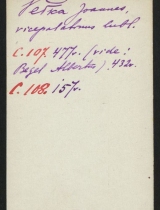 Veska Joannes,
vicepalatinus lubl.
C. 107. 477v. (vide:
Bagel Alberta) 432v.
C. 108. 157v.